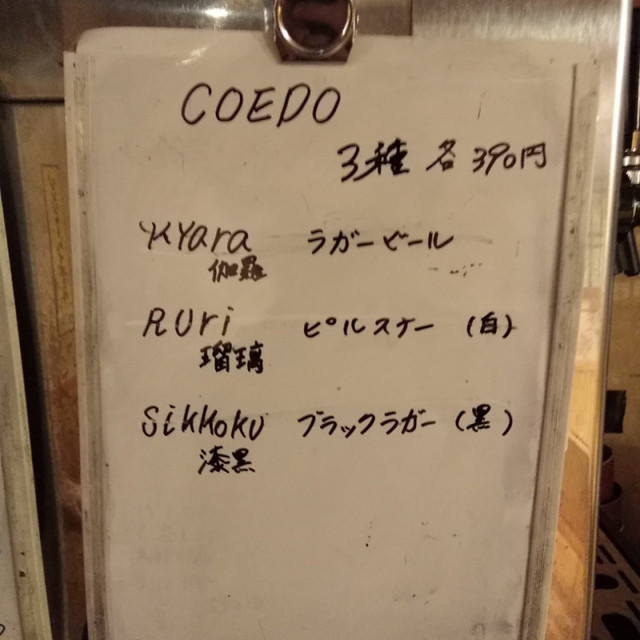 COEDO
3種 各390円
Kyara ラガービール
伽羅
RUri ピルスナー (白)
瑠璃
Sikkoku ブラックラガー (黒)
漆黒